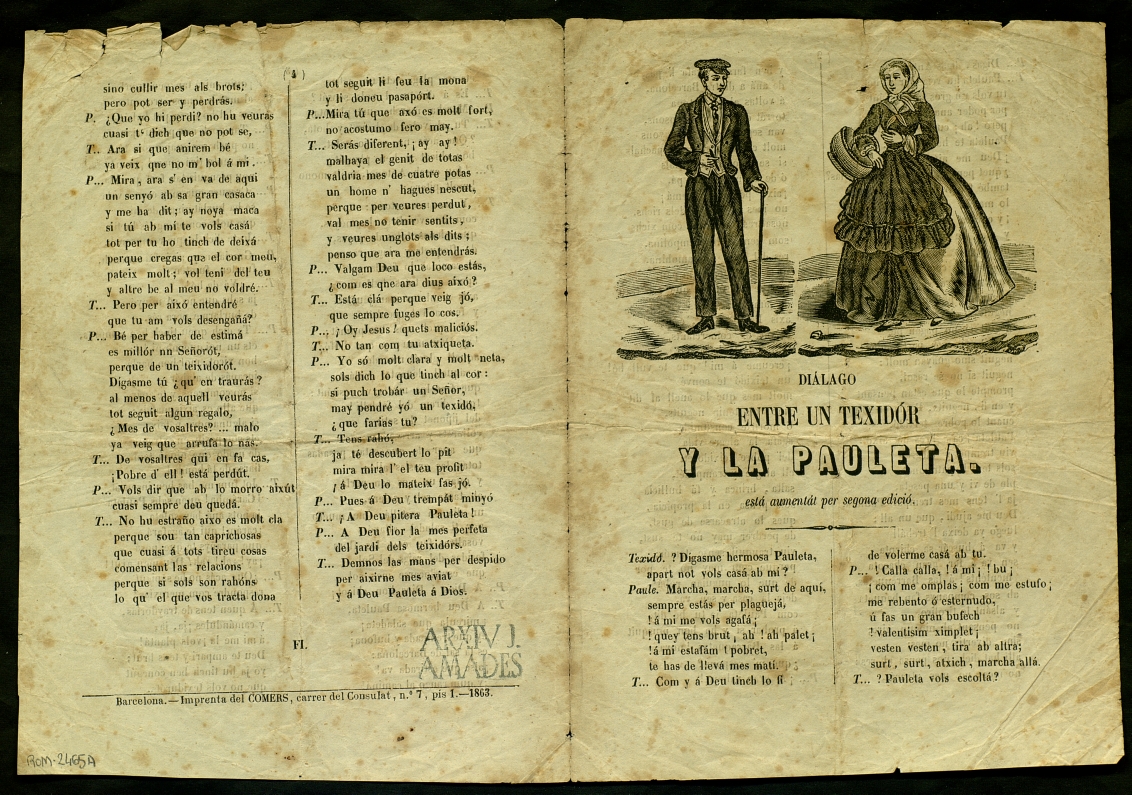 ( 4 )
sino cullir mes als brots;
pero pot ser y perdrás.
P. ¿Que yo hi perdi? no hu veurás
cuasi t' dich que no pot se,
T.. Ara si que anirem bé
ya veix qne no m' bol á mi.
P... Mira, ara s' en va de aqui
un senyó ab sa gran casaca
y me ha dit; ay noya maca
si tú ab mí te vols casá
tot per tu ho tinch de deixá
perque cregas que el cor meu,
pateix molt; vol teni del teu
y altre be al meu no voldré.
T... Pero per aixó entendré
que tu am vols desengañá?
P... Bé per haber de estimá
es millór nn Señorót,
perque de un teixidorót.
Digasme tú ¿qu' en traurás?
al menos de aquell veurás
tot seguit algun regalo,
¿Mes de vosaltres? ... malo
ya veig que arrufa lo nas.
T... De vosaltres qui en fa cas,
¡Pobre d' ell! está perdút.
P... Vols dir que ab lo morro aixút
cuasi sempre deu quedá.
T... No hu estraño aixo es molt cla
perque sou tan caprichosas
que cuasi á tots tireu cosas
comensant las relacions
perque si sols son rahóns
lo qu' el que vos tracta dona
tot seguit li feu la mona
y li doneu pasapórt.
P...Mira tú que axó es molt fort,
no acostumo fero may.
T... Serás diferent, ¡ay ay!
malhaya el genit de totas
valdria mes de cuatre potas
un home n' hagues nescut,
perque per veures perdut,
val mes no tenir sentits,
y veures unglots als dits;
penso que ara me entendrás.
P... Valgam Deu que loco estás,
¿com es qne ara dius aixó?
T... Está clá perque veig jó,
que sempre fuges lo cos.
P... ¡Oy Jesus! quets maliciós.
T... No tan com tu atxiqueta.
P... Yo só molt clara y molt neta,
sols dich lo que tinch al cor:
si puch trobár un Señor,
may pendré yó un texidó,
¿que farias tu?
T... Tens rahó,
ja té descubert lo pit
mira mira l' el teu profit
¡á Deu lo mateix fas jó.
P... Pues á Deu trempát minyó
T... ¡A Deu pitera Pauleta!
P... A Deu flor la mes perfeta
del jardí dels teixidórs.
T... Demnos las mans per despido
per aixirne mes aviat
y á Deu Pauleta á Dios.
FI.
ARXIV J.
AMADES
Barcelona.—Imprenta del COMERS, carrer del Consulat, n.º 7, pis 1.—1863.
ROM-2465A
DIÁLAGO
ENTRE UN TEXIDÓR
Y LA PAULETA.
está aumentát per segona edició.
Texidó. ? Digasme hermosa Pauleta,
apart not vols casá ab mi?
Paule. Marcha, marcha, surt de aquí,
sempre estás per plaguejá,
!á mi me vols agafá;
! quey tens brut, ah! ah palet;
!á mi estafám! pobret,
te has de llevá mes matí.
T... Com y á Deu tinch lo fi
de volerme casá ab tu.
P... ! Calla calla, !á mi; ! bú;
¡com me omplas; com me estufo;
me rebento ó esternudo,
ú fas un gran bufech
! valentisim ximplet;
vesten vesten, tira ab altra;
surt, surt, atxich, marcha allá.
T... ? Pauleta vols escoltá?